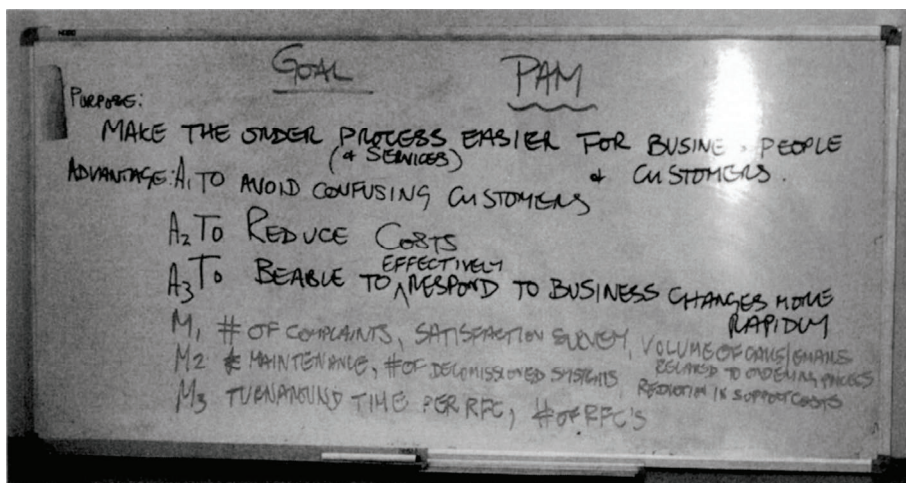 GOAL PAM
PURPOSE:
MAKE THE ORDER PROCESS EASIER FOR BUSINE PEOPLE
(& SERVICES) & CUSTOMERS.
ADVANTAGE: A1 TO AVOID CONFUSING CUSTOMERS
A2 TO REDUCE COSTS
EFFECTIVELY
A3 TO BEABLE TO RESPOND TO BUSINESS CHANGES MORE
RAPIDLY
M1 # OF COMPLAINTS, SATISFACTION SURVEY, VOLUME OF CALLS/EMAILS
RELATED TO ORDERING PROCESS
M2 MAINTENANCE, # OF DECOMISSIONED SYSTEMS
REDUCTION IN SUPPORT COSTS
M3 TURNAROUND TIME PER RFC, # OF RFC'S